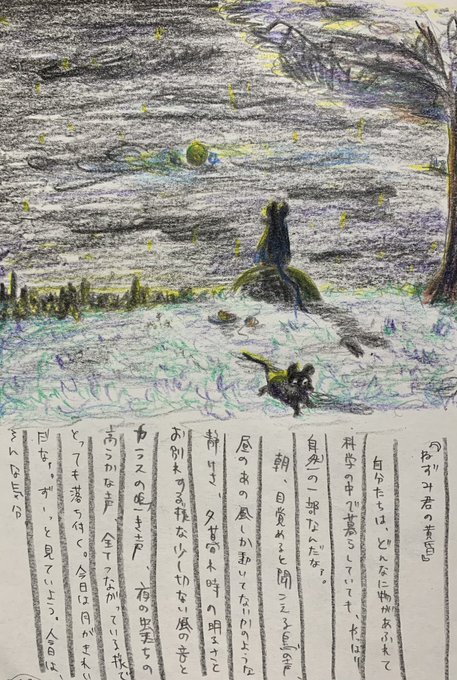 『ねずみ君の黄昏』
自分たちは、どんなに物があふれて
科学の中で暮らしていても、やっぱり
自然の一部なんだな。
朝、目覚めると聞こえる鳥の声、
昼のあの風しか動いてないかのような
静けさ、夕暮れ時の明るさと
お別れする様な少し切ない風の音と
カラスの鳴き声、夜の虫たちの
高らかな声、全てつながっている様で
とっても落ち付く。今日は月がきれい
だな。ずーっと見ていよう。今日は、
そんな気分